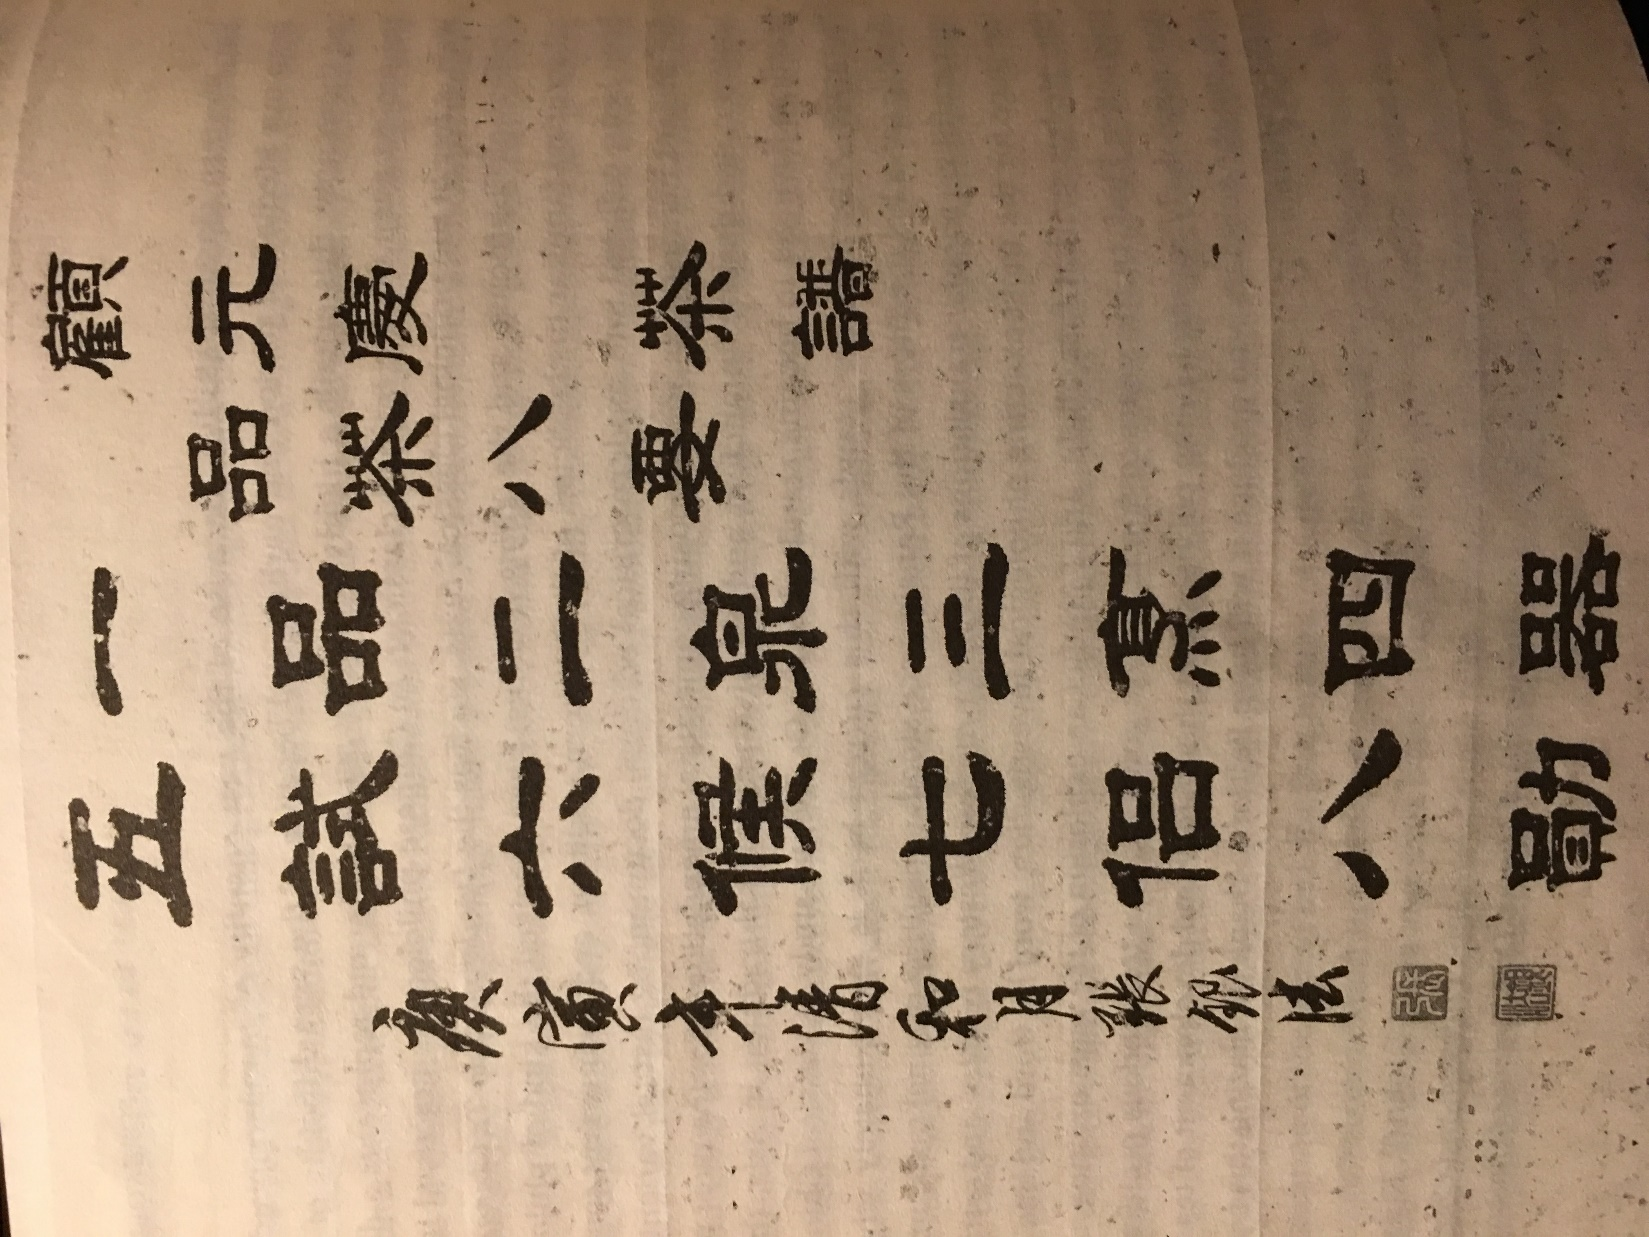 顧元慶 茶譜
品茶八要
一品二泉三烹四器
五試六候七侶八勛
庚寅年清和月張銀法